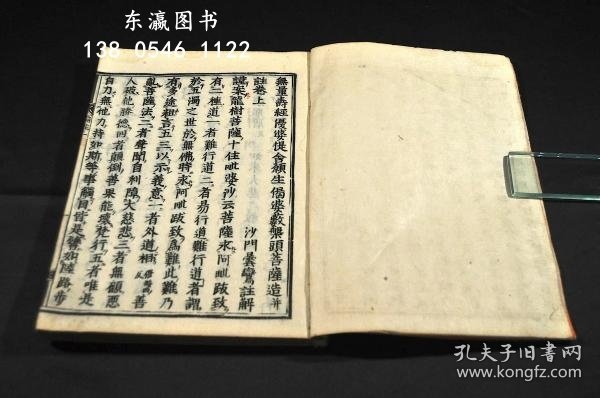 东瀛图书
138 0546 1122
無量壽經優婆提舍願生偈婆藪槃頭菩薩造并
註卷上
沙門曇鸞註解
謹案龍樹菩薩十住毗婆沙云菩薩求阿毗跋致
有二種道一者難行道二者易行道難行道者謂
於五濁之世於無佛時求阿毗跋致爲難此難乃
有多途粗言五三以示義意一者外道相善
亂菩薩法二者聲聞自利障大慈悲三者無顧惡
人破他勝德四者顛倒善果能壞梵行五者唯是
自力無他力持如斯等事觸目皆是譬如陸路步
孔夫子旧书网
www.kongfz.com